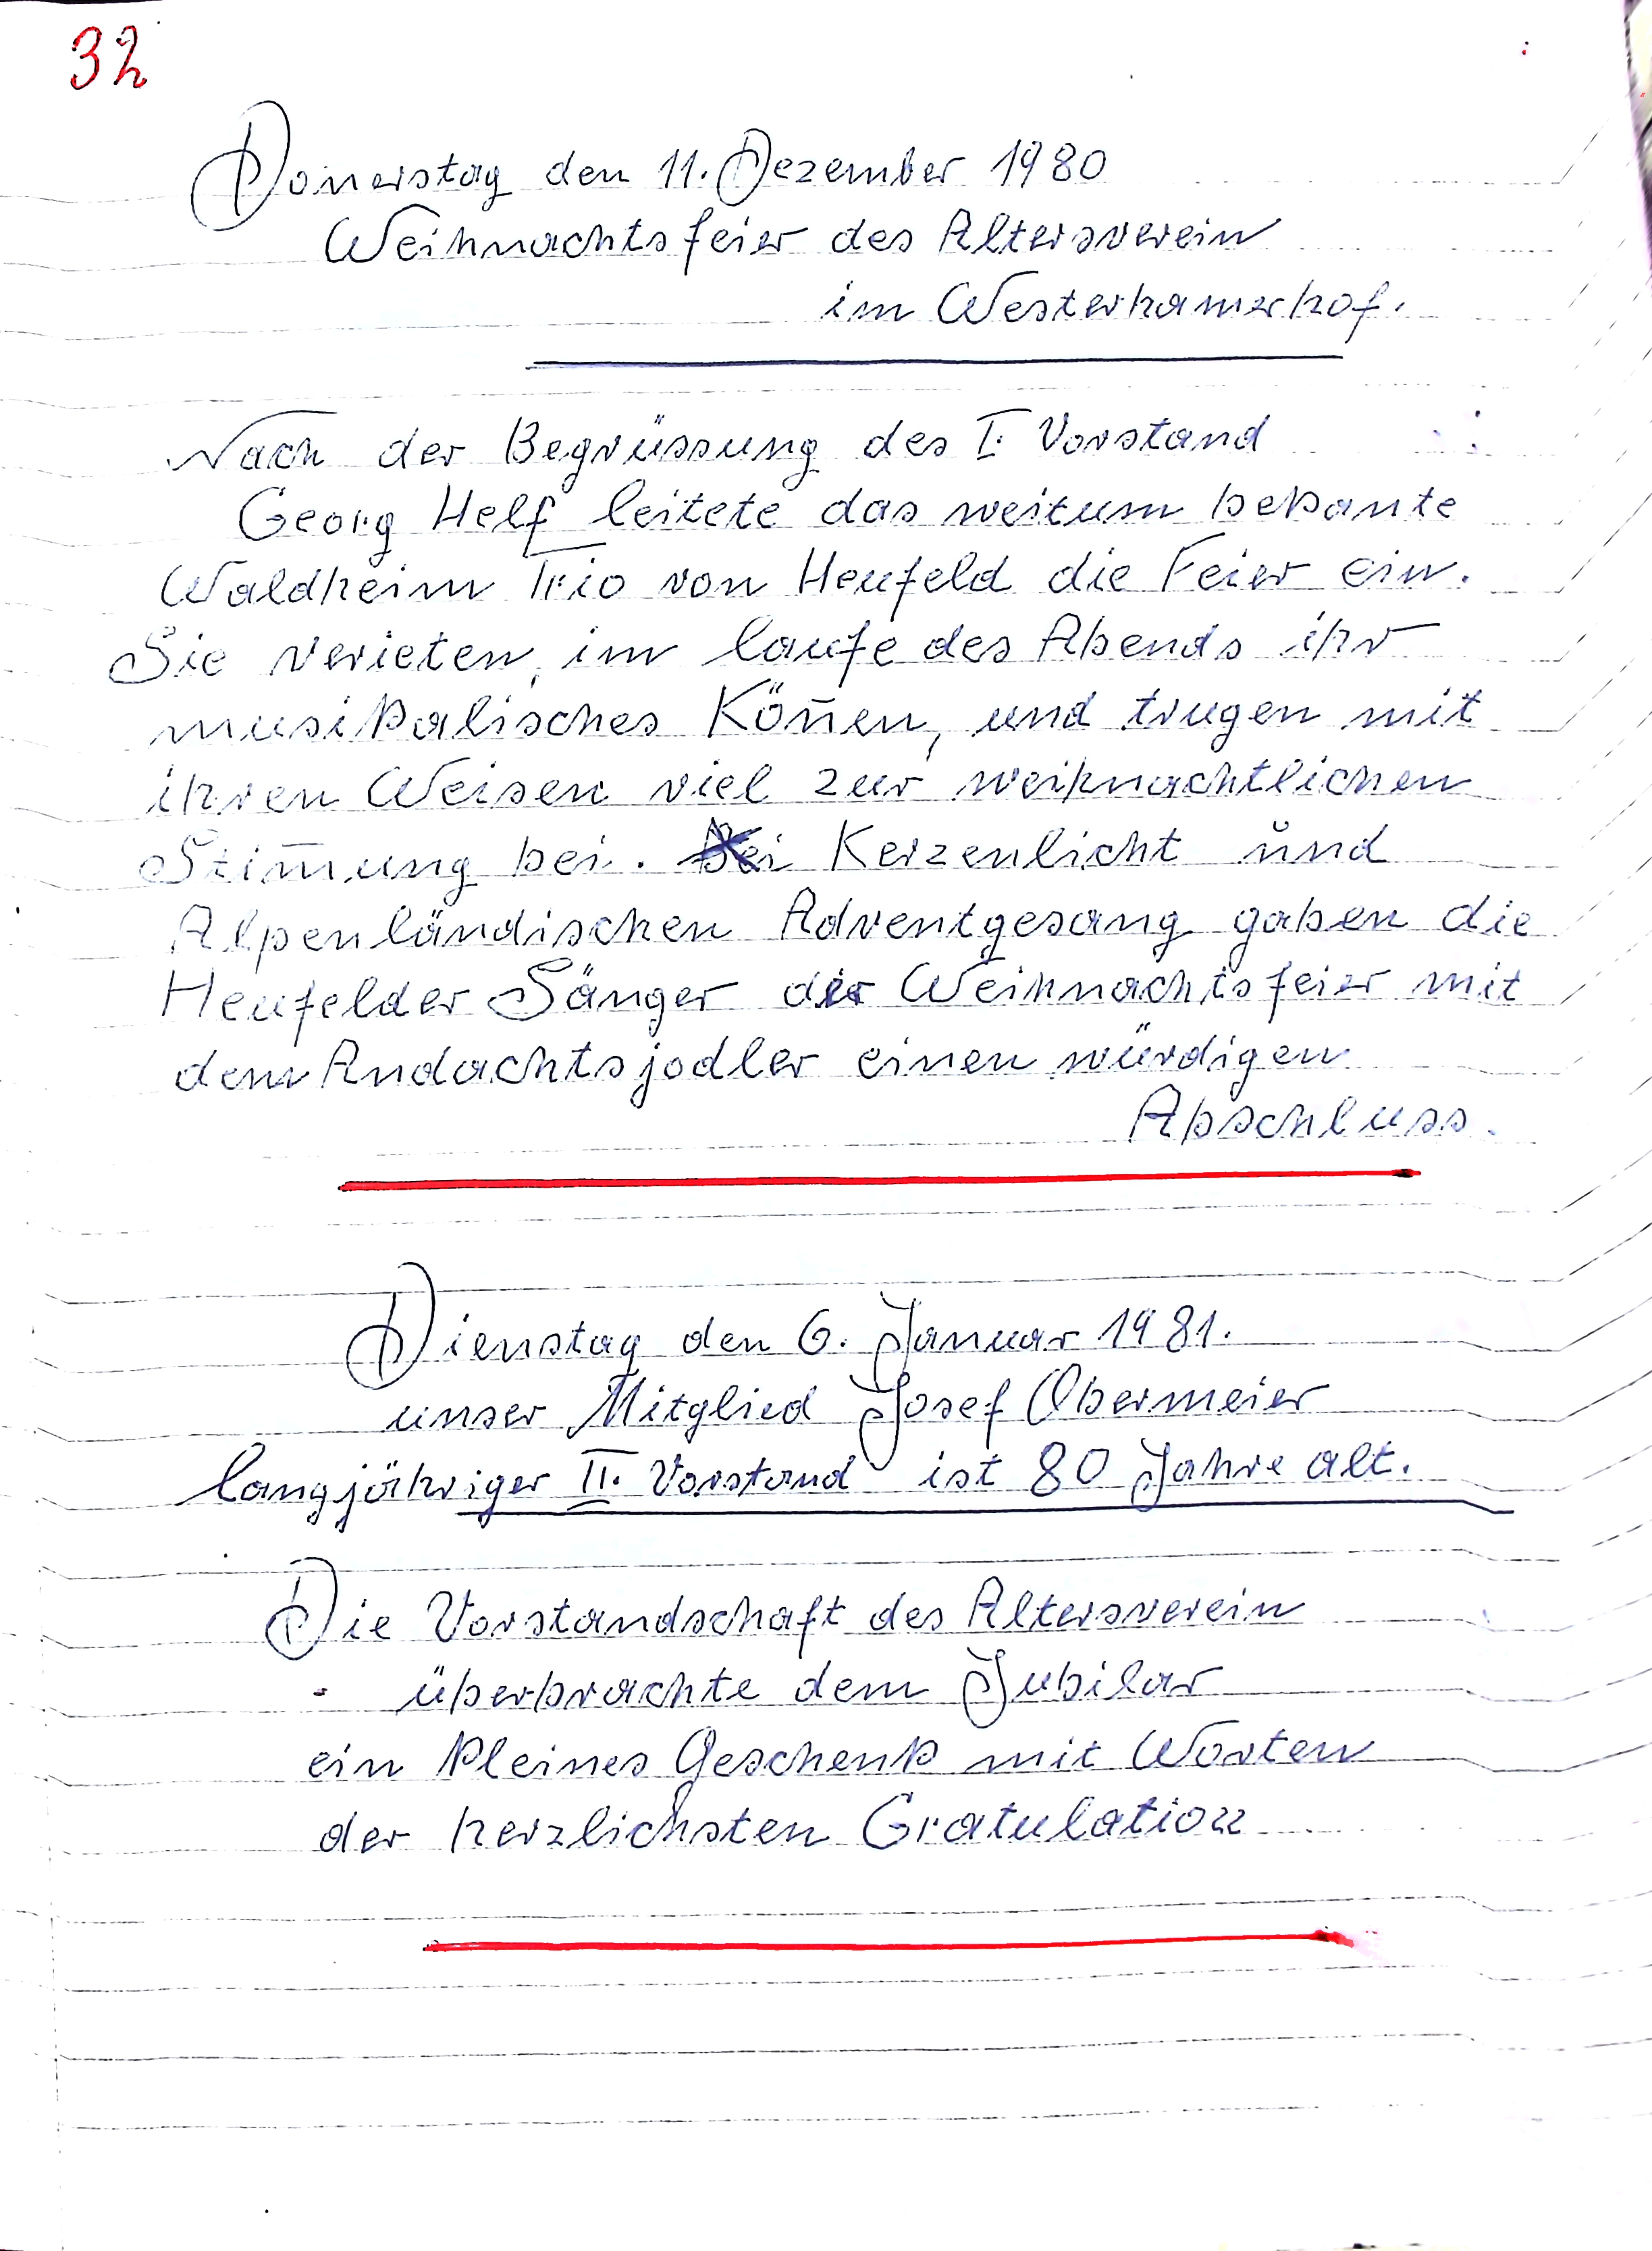 32
Donerstag den 11. Dezember 1980
Weihnachtsfeier des Altersverein
im Westerhamerhof.
Nach der Begrüssung des I. Vorstand
Georg Helf leitete das weitum bekante
Waldheim Trio von Heufeld die Feier ein.
Sie verieten, im laufe des Abends ihr
musikalisches Kön̄en, und trugen mit
ihren Weisen viel zur weihnachtlichen
Stim̄ung bei. Bei Kerzenlicht und
Alpenländischen Adventgesang gaben die
Heufelder Sänger der Weihnachtsfeier mit
dem Andachtsjodler einen würdigen
Abschluss.
Dienstag den 6. Januar 1981.
unser Mitglied Josef Obermeier
langjähriger II. Vorstand ist 80 Jahre alt.
Die Vorstandschaft des Altersverein
überbrachte dem Jubilar
ein kleines Geschenk mit Worten
der herzlichsten Gratulation